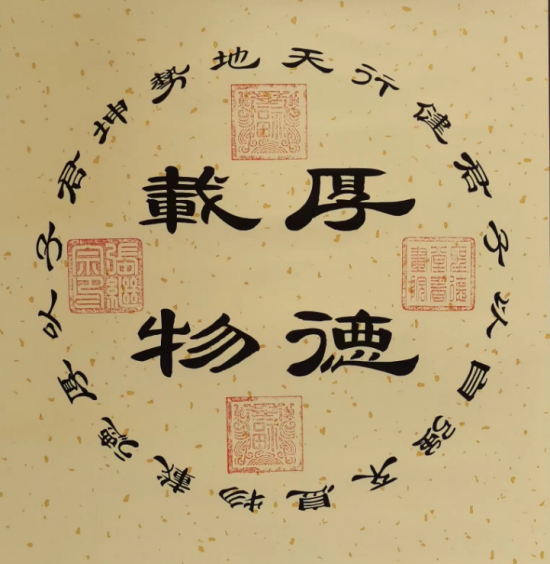 厚德
載物
天行健君子以自強不息
地勢坤君子以厚德載物
張繼
宗印